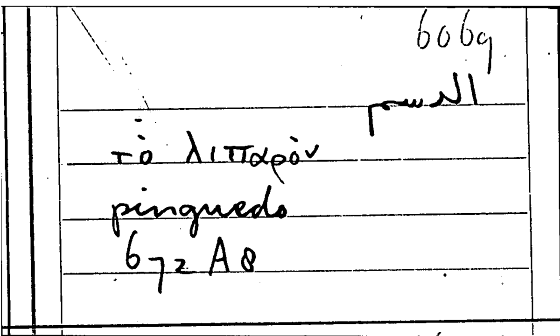 6069
τὸ λιπαρόν
pinguedo
672 A8